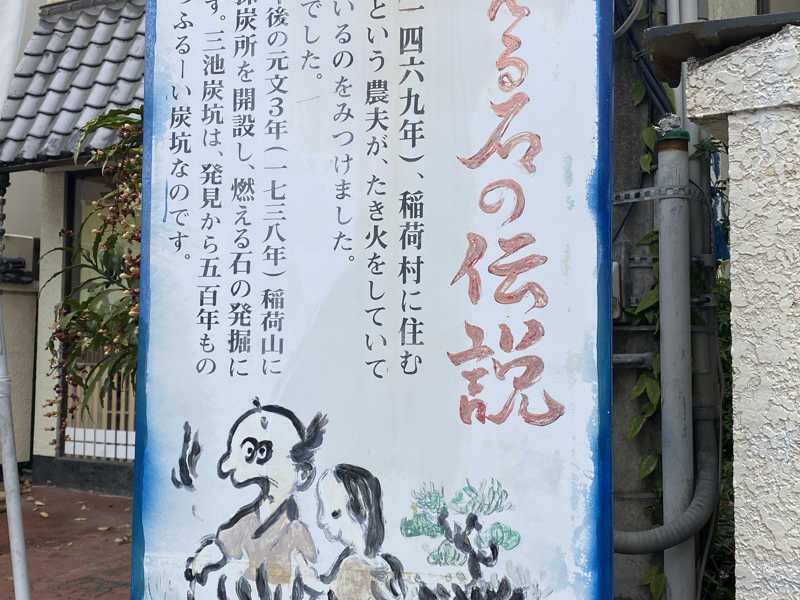 える石の伝説
一四六九年）、稲荷村に住む
という農夫が、たき火をしていて
いるのをみつけました。
でした。
年後の元文3年（一七三八年）稲荷山に
採炭所を開設し、燃える石の発掘に
す。三池炭坑は、発見から五百年もの
つふるーい炭坑なのです。